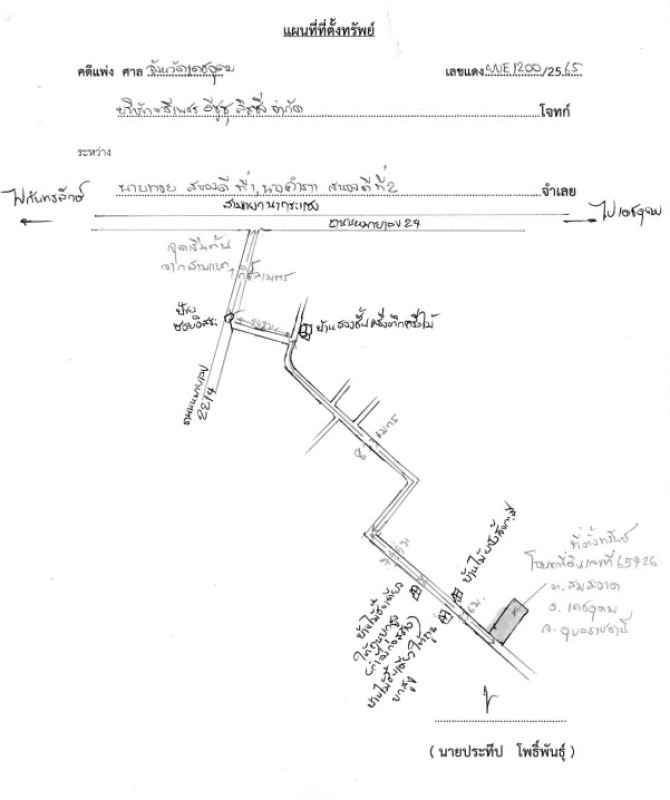 แผนที่ที่ตั้งทรัพย์
คดีแพ่ง ศาล จังหวัดเดชอุดม เลขแดง ผบE1200/2565
บริษัท ตรีเพชร อีซูซุ ลิสซิ่ง จำกัด โจทก์
ระหว่าง
นายทอย สนองดี ที่1, จำเลย
ไปกันทรลักษ์ ไปเดชอุดม
สามแยกนากระแซง
ถนนหมายเลข 24
จุดเริ่มต้น
จากสามแยก
กิโลเมตร
ป้าย
ซอยอิสระ
บ้านสองชั้นครึ่งตึกครึ่งไม้
ถนนหมายเลข
2214
เมตร
ที่ตั้งทรัพย์
โฉนดที่ดินเลขที่ 65926
ต. สมสะอาด
อ. เดชอุดม
จ. อุบลราชธานี
บ้านไม้ชั้นเดียว
ใต้ถุนยกสูง
บ้านไม้ชั้นเดียวใต้ถุน
ยกสูง
( นายประทีป โพธิ์พันธุ์ )